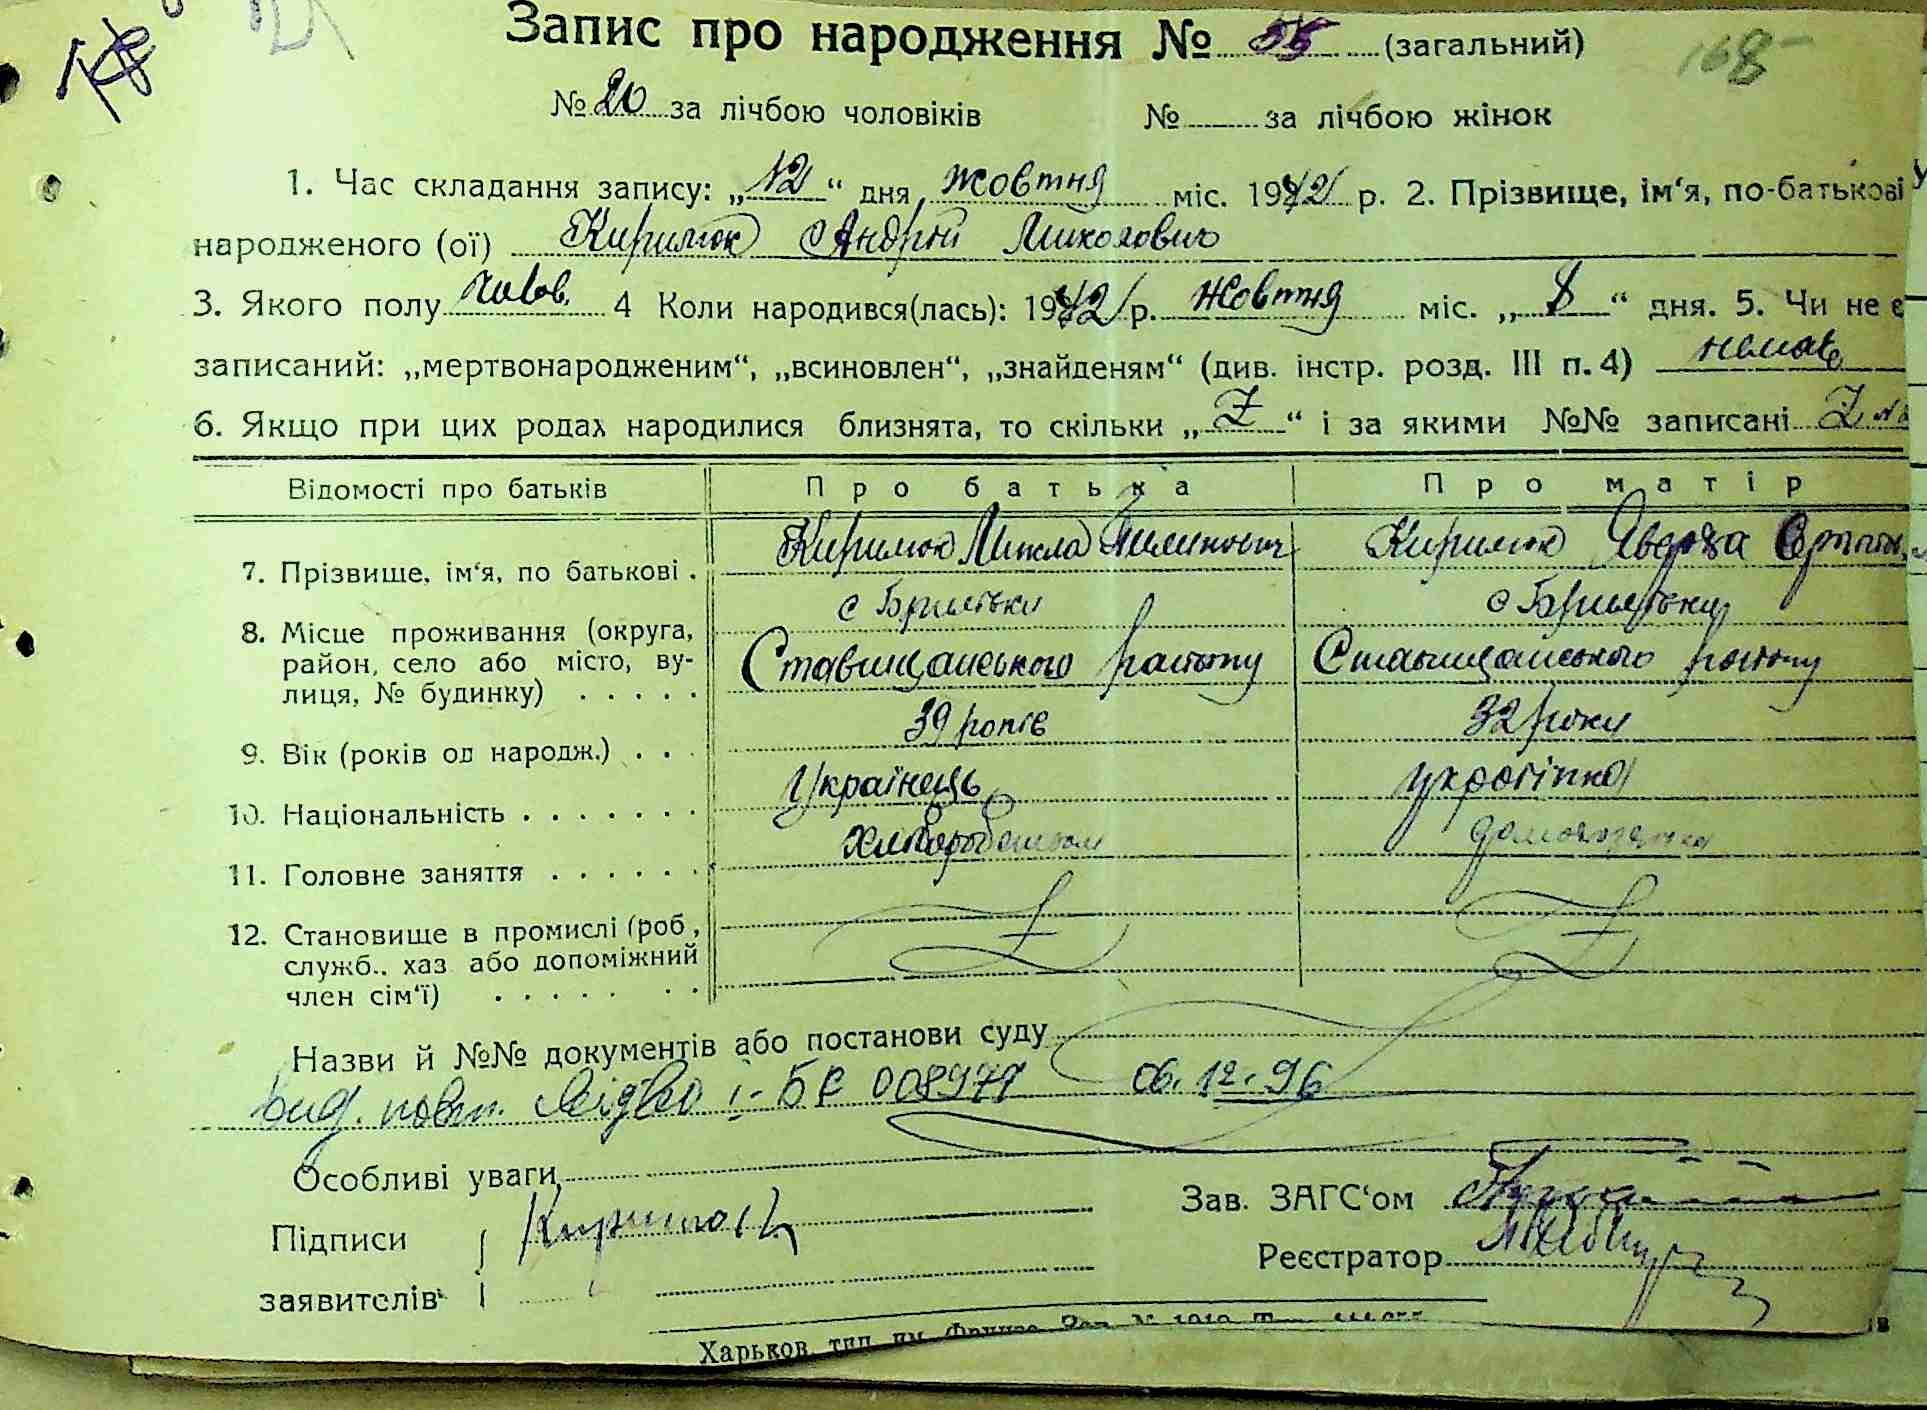 168
Запис про народження № 55 (загальний)
№ 20 за лічбою чоловіків № за лічбою жінок
1. Час складання запису: „12“ дня жовтня міс. 1942 р. 2. Прізвище, ім‘я, по-батькові
народженого (ої) Кирилюк Андрій Миколович
3. Якого полу чолов. 4 Коли народився(лась): 1942 р. жовтня міс. „8“ дня. 5. Чи не є
записаний: „мертвонародженим“, „всиновлен“, „знайденям“ (див. інстр. розд. III п. 4) немає
6. Якщо при цих родах народилися близнята, то скільки „Z“ і за якими №№ записані Z
Відомості про батьків Про батька Про матір
7. Прізвище, ім‘я, по батькові . Кирилюк Микола Пилипович Кирилюк Явдоха
8. Місце проживання (округа, район, село або місто, ву-
лиця, № будинку) . . . . . с Брилівки Ставищанського району с Брилівки Ставищанського району
9. Вік (років од народж.) . . . 39 років 32 роки
10. Національність . . . . . . . Українець українка
11. Головне заняття . . . . . . Хлібороб домохазяйка
12. Становище в промислі (роб.,
служб.. хаз або допоміжний
член сім‘ї) . . . . . . . Z Z
Назви й №№ документів або постанови суду
вид. повт. свідтво І-БК 008979 06.12.96
Особливі уваги
Підписи Кирилюк Зав. ЗАГС‘ом
заявителів Реєстратор
Харьков, тип. им. Фрунзе. Зак. № 1919